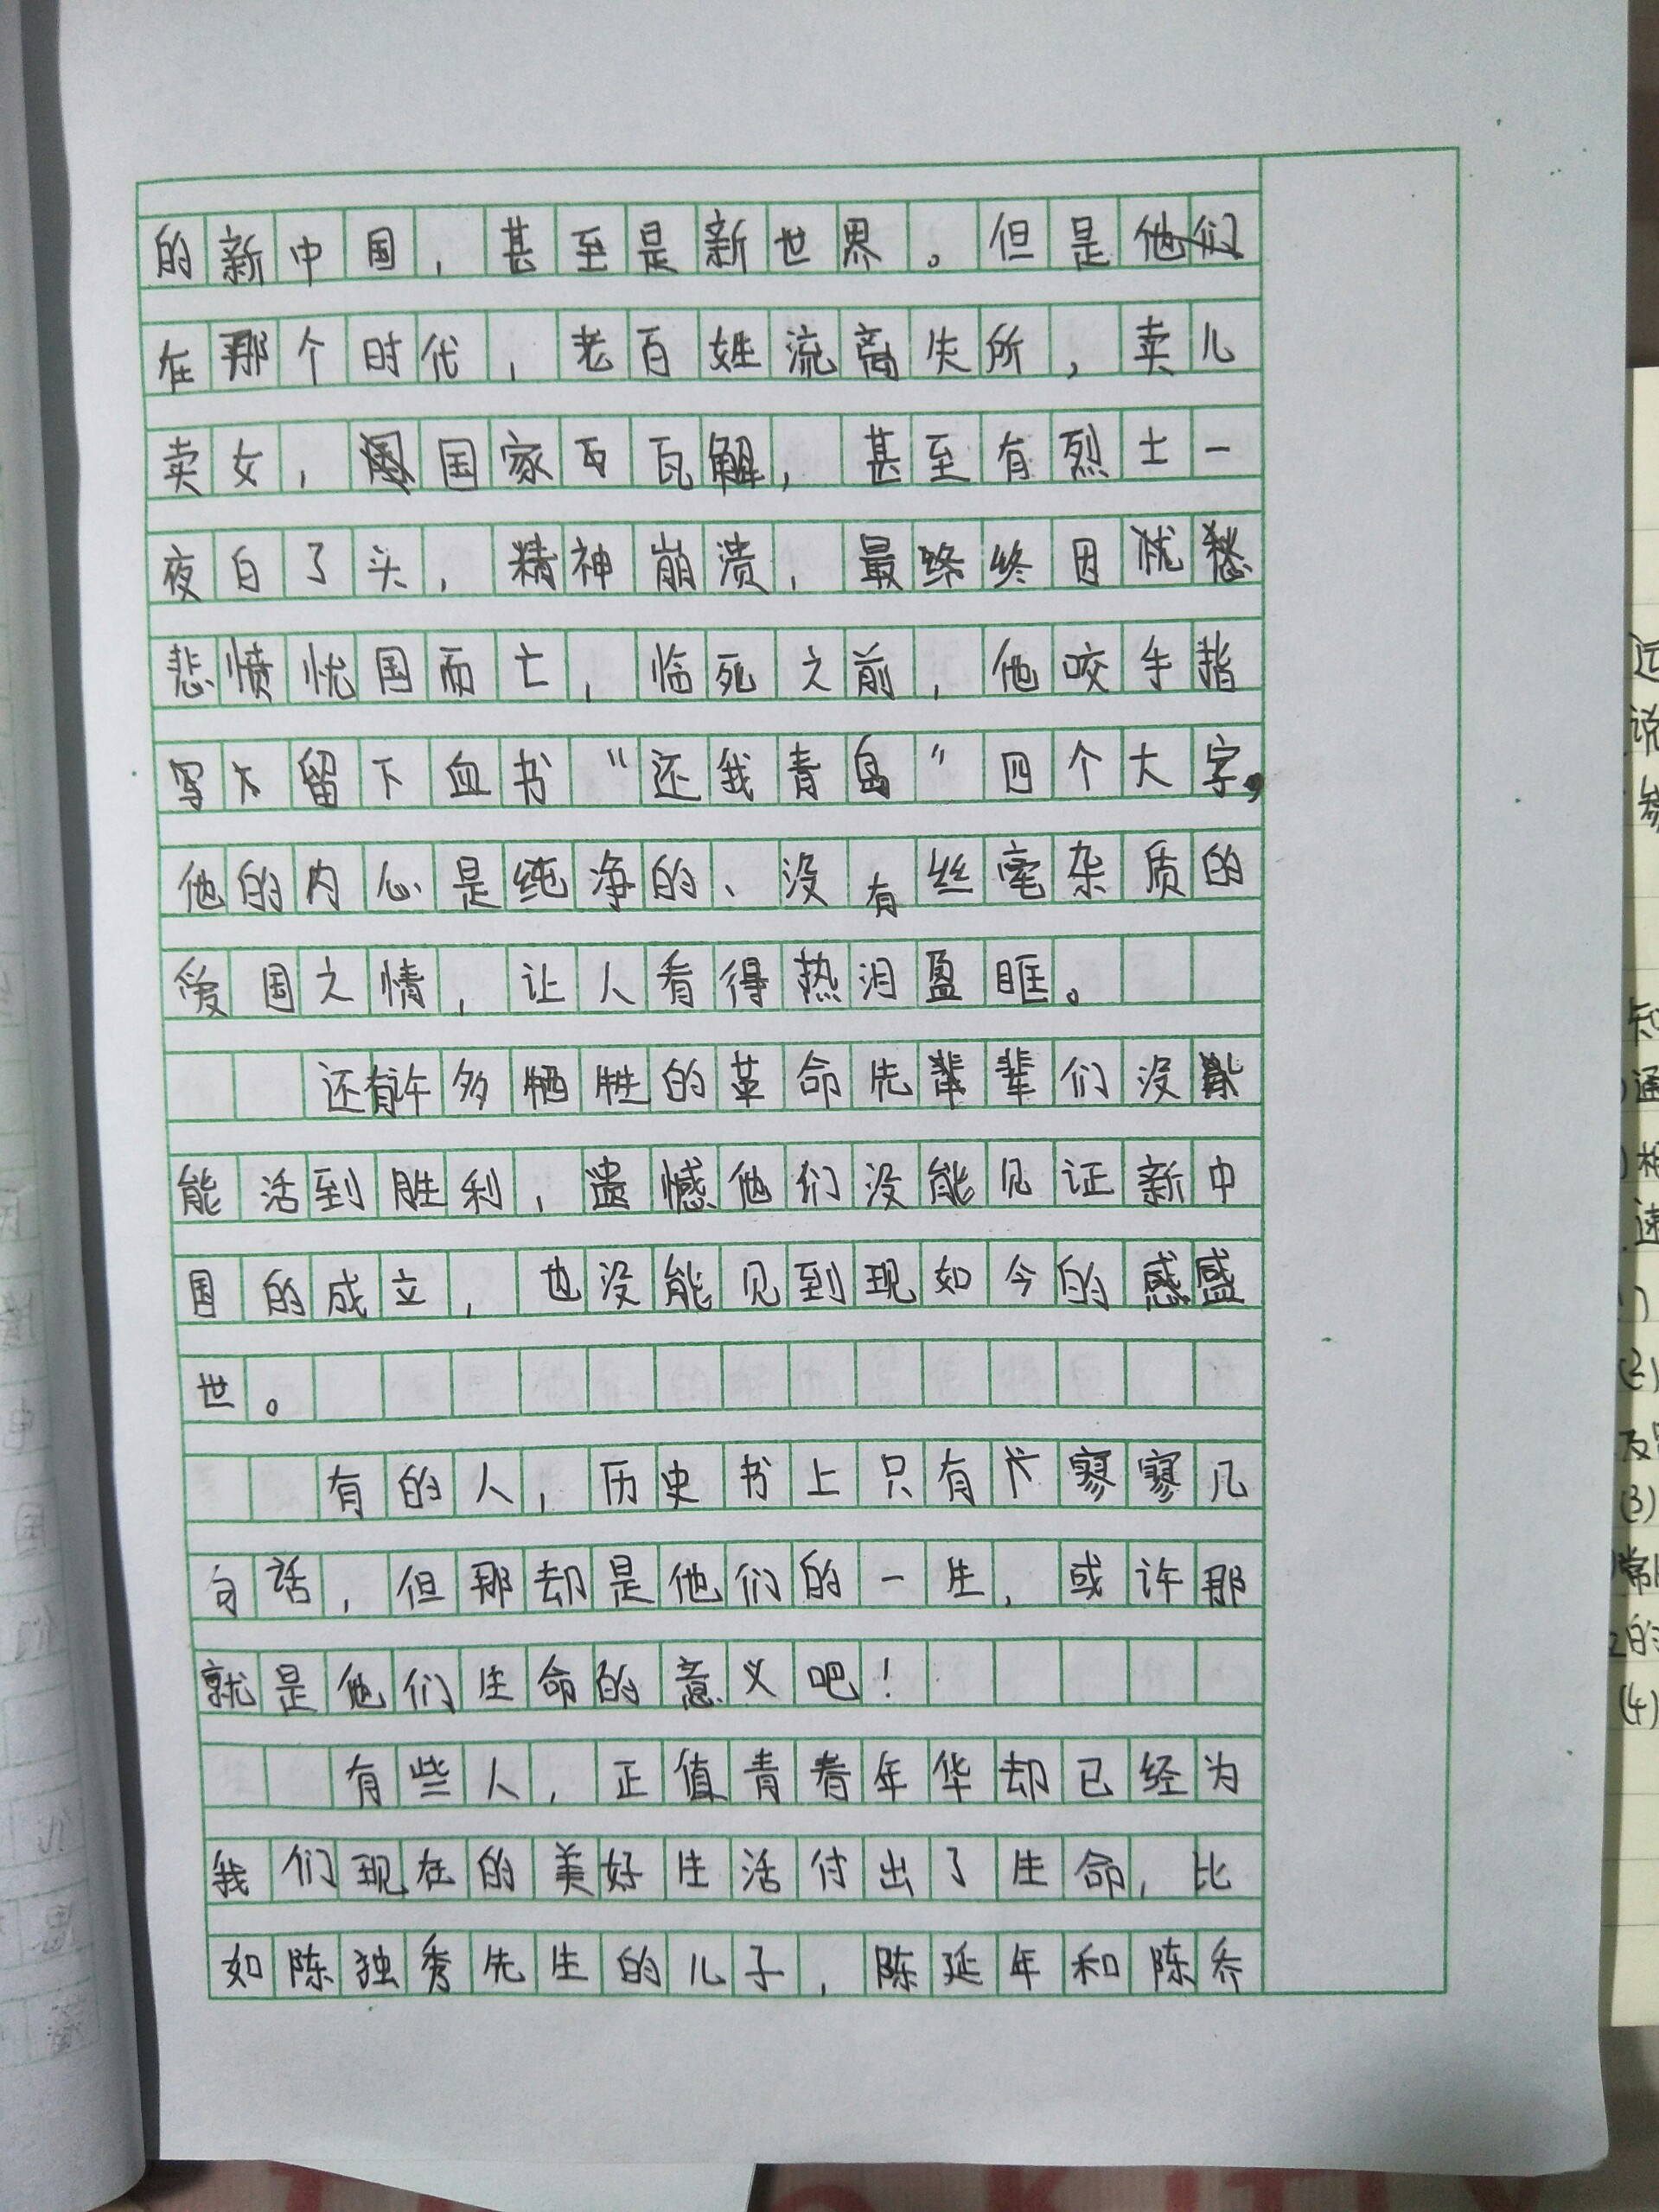 的新中国，甚至是新世界。但是他们
在那个时代，老百姓流离失所，卖儿
卖女，国家瓦解，甚至有烈士一
夜白了头，精神崩溃，最终因忧愁
悲愤忧国而亡，临死之前，他咬手指
写下留下血书“还我青岛”四个大字，
他的内心是纯净的、没有丝毫杂质的
爱国之情，让人看得热泪盈眶。
还有许多牺牲的革命先辈们没能
能活到胜利，遗憾他们没能见证新中
国的成立，也没能见到现如今的盛
世。
有的人，历史书上只有寥寥几
句话，但那却是他们的一生，或许那
就是他们生命的意义吧！
有些人，正值青春年华却已经为
我们现在的美好生活付出了生命，比
如陈独秀先生的儿子，陈延年和陈乔
远
说
知
通
(2)
(3)
常
的
(4)